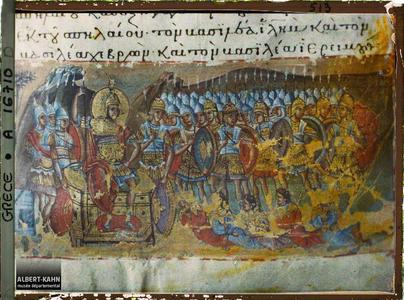 513
ἐκ τοῦ σπηλαίου· τὸν βασιλέα ἰλημ καὶ τὸν
βασιλέα χεβρὼν· καὶ τὸν βασιλέα ἱεριμου
GRÈCE • A 16710
ALBERT-KAHN
musée départemental